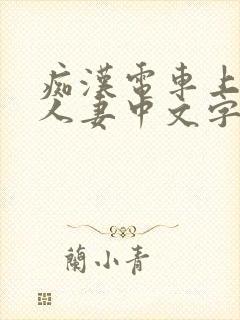 痴漢電車上
人妻中文字
蘭小青